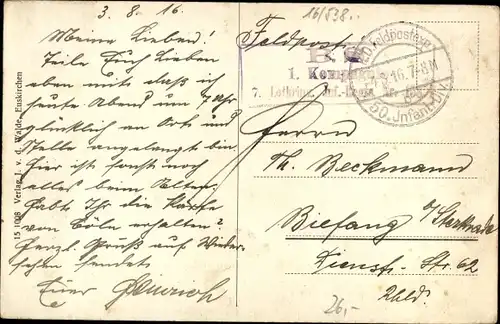 3. 8. 16.
Meine Lieben!
Teile Euch Lieben
eben mit daß ich
heute Abend um 7 Uhr
glücklich an Ort und
Stelle angelangt bin
hier ist sonst noch
alles beim Alten.
Habt Ihr die Karte
von Cöln erhalten?
Herzl. Gruß auf Wieder
sehen sendet
Euer Heinrich
15 1098 Verlag J. v. d. Walde, Euskirchen
16/538.
Feldpost
1. Komp
7. Lothring. Inf.-Regt. Nr.
Feldpostexp.
16. 7-8 N
50. Infant. Div.
Herrn
Th. Beckmann
Biefang b/ Sterkrade
Dienst. Str. 62
Rhld.
26,-